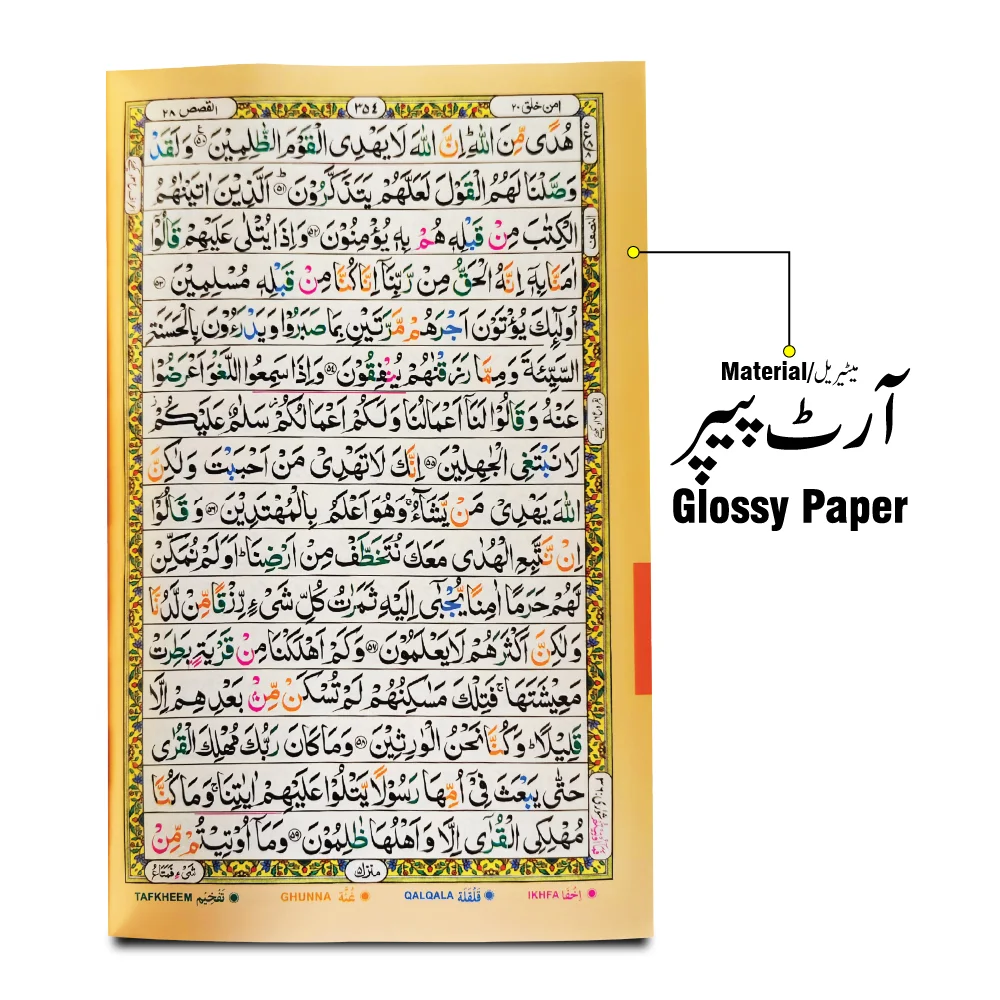 القصص ٢٨
٣٥٤
امن خلق ٢٠
هُدًى مِّنَ اللّٰهِ ؕ اِنَّ اللّٰهَ لَا يَهْدِى الْقَوْمَ الظّٰلِمِيْنَ ۝٥٠ وَلَقَدْ
وَصَّلْنَا لَهُمُ الْقَوْلَ لَعَلَّهُمْ يَتَذَكَّرُوْنَ ؕ۝٥١ اَلَّذِيْنَ اٰتَيْنٰهُمُ
الْكِتٰبَ مِنْ قَبْلِهٖ هُمْ بِهٖ يُؤْمِنُوْنَ ۝٥٢ وَاِذَا يُتْلٰى عَلَيْهِمْ قَالُوْٓا
اٰمَنَّا بِهٖٓ اِنَّهُ الْحَقُّ مِنْ رَّبِّنَآ اِنَّا كُنَّا مِنْ قَبْلِهٖ مُسْلِمِيْنَ ۝٥٣
اُولٰٓئِكَ يُؤْتَوْنَ اَجْرَهُمْ مَّرَّتَيْنِ بِمَا صَبَرُوْا وَيَدْرَءُوْنَ بِالْحَسَنَةِ
السَّيِّئَةَ وَمِمَّا رَزَقْنٰهُمْ يُنْفِقُوْنَ ۝٥٤ وَاِذَا سَمِعُوا اللَّغْوَ اَعْرَضُوْا
عَنْهُ وَقَالُوْا لَنَآ اَعْمَالُنَا وَلَكُمْ اَعْمَالُكُمْ سَلٰمٌ عَلَيْكُمْ
لَا نَبْتَغِى الْجٰهِلِيْنَ ۝٥٥ اِنَّكَ لَا تَهْدِىْ مَنْ اَحْبَبْتَ وَلٰكِنَّ
اللّٰهَ يَهْدِىْ مَنْ يَّشَآءُ وَهُوَ اَعْلَمُ بِالْمُهْتَدِيْنَ ۝٥٦ وَقَالُوْٓا
اِنْ نَّتَّبِعِ الْهُدٰى مَعَكَ نُتَخَطَّفْ مِنْ اَرْضِنَا ؕ اَوَلَمْ نُمَكِّنْ
لَّهُمْ حَرَمًا اٰمِنًا يُّجْبٰٓى اِلَيْهِ ثَمَرٰتُ كُلِّ شَىْءٍ رِّزْقًا مِّنْ لَّدُنَّا
وَلٰكِنَّ اَكْثَرَهُمْ لَا يَعْلَمُوْنَ ۝٥٧ وَكَمْ اَهْلَكْنَا مِنْ قَرْيَةٍۭ بَطِرَتْ
مَعِيْشَتَهَا ۚ فَتِلْكَ مَسٰكِنُهُمْ لَمْ تُسْكَنْ مِّنْۢ بَعْدِهِمْ اِلَّا
قَلِيْلًا ؕ وَكُنَّا نَحْنُ الْوٰرِثِيْنَ ۝٥٨ وَمَا كَانَ رَبُّكَ مُهْلِكَ الْقُرٰى
حَتّٰى يَبْعَثَ فِىْٓ اُمِّهَا رَسُوْلًا يَّتْلُوْا عَلَيْهِمْ اٰيٰتِنَا ۚ وَمَا كُنَّا
مُهْلِكِى الْقُرٰٓى اِلَّا وَاَهْلُهَا ظٰلِمُوْنَ ۝٥٩ وَمَآ اُوْتِيْتُمْ مِّنْ
النصف
منزل ٥
شَىْءٍ فَمَتَاعُ
TAFKHEEM تَفْخِيْم GHUNNA غُنَّه QALQALA قَلْقَلَة IKHFA اِخْفَا
Material/میٹیریل
آرٹ پیپر
Glossy Paper